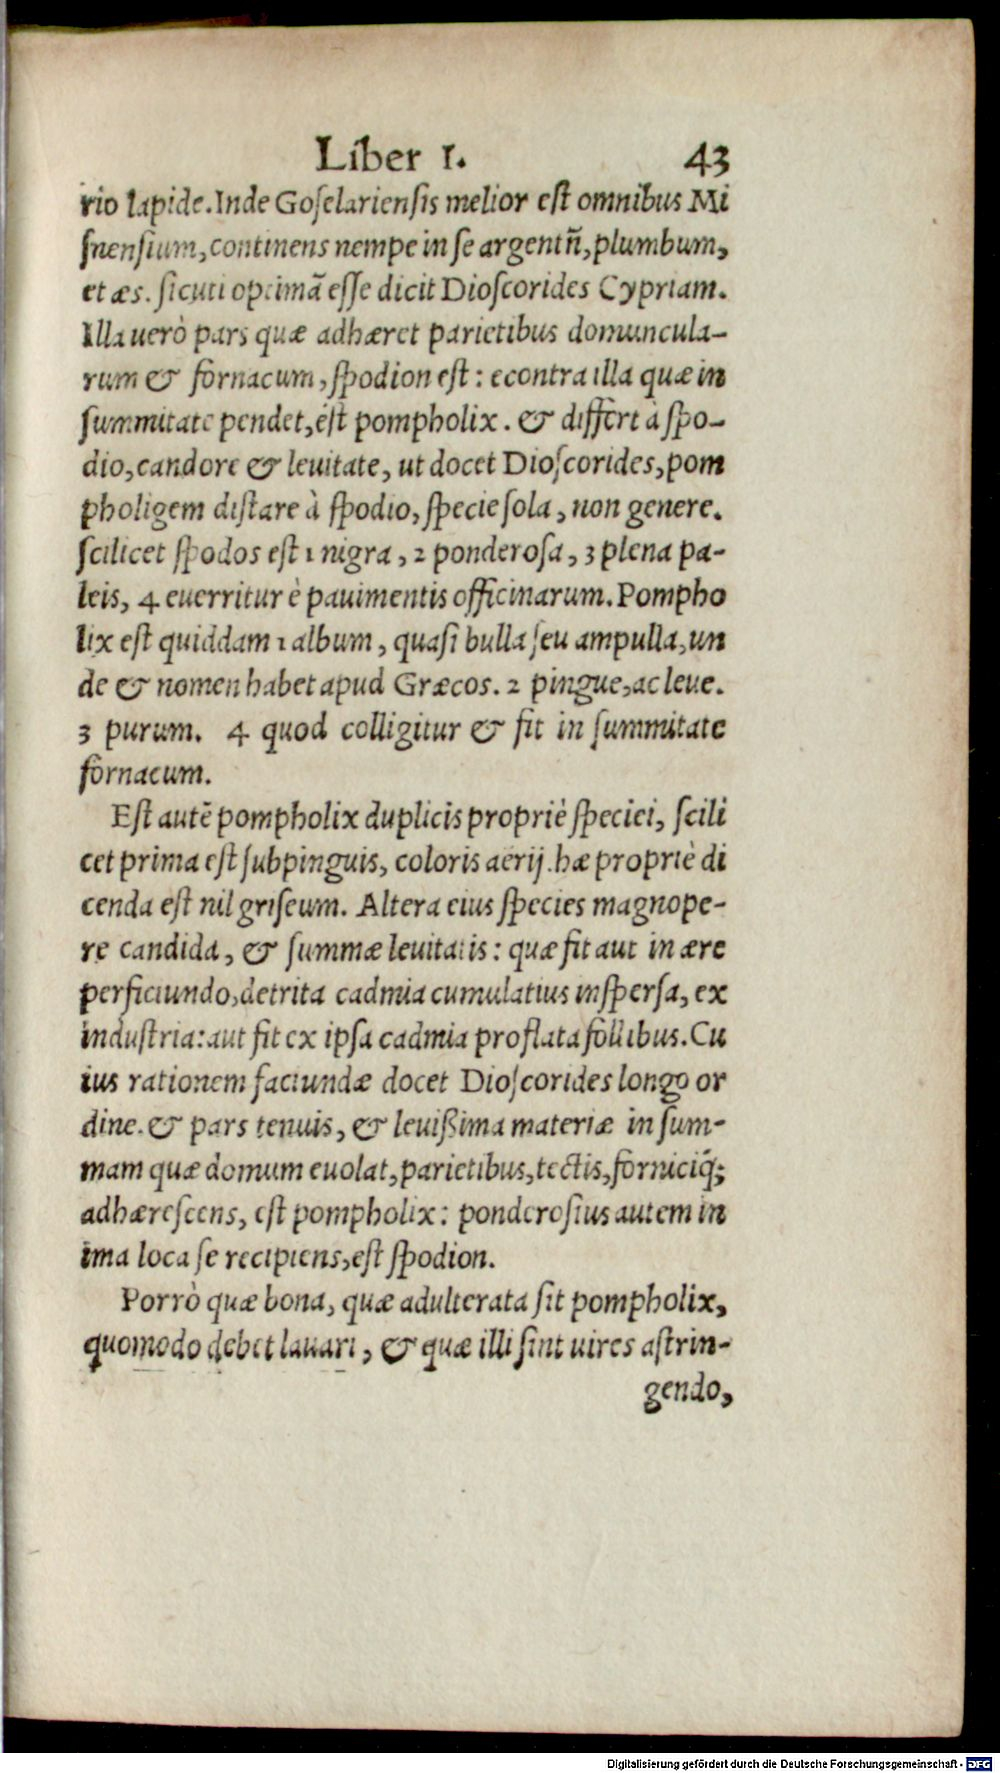 Liber I. 43
rio lapide. Inde Goſelarienſis melior eſt omnibus Mi
ſnenſium, continens nempe in ſe argentũ, plumbum,
et æs. ſicuti optimã eſſe dicit Dioſcorides Cypriam.
Illa uerò pars quæ adhæret parietibus domuncula-
rum & fornacum, ſpodion eſt: econtra illa quæ in
ſummitate pendet, eſt pompholix. & differt à ſpo-
dio, candore & leuitate, ut docet Dioſcorides, pom
pholigem diſtare à ſpodio, ſpecie ſola, non genere.
ſcilicet ſpodos eſt 1 nigra, 2 ponderoſa, 3 plena pa-
leis, 4 euerritur è pauimentis officinarum. Pompho
lix eſt quiddam 1 album, quaſi bulla ſeu ampulla, un
de & nomen habet apud Græcos. 2 pingue, ac leue.
3 purum. 4 quod colligitur & fit in ſummitate
fornacum.
Eſt autẽ pompholix duplicis propriè ſpeciei, ſcili
cet prima eſt ſubpinguis, coloris aerij. hæ propriè di
cenda eſt nil griſeum. Altera eius ſpecies magnope-
re candida, & ſummæ leuitatis: quæ fit aut in ære
perficiundo, detrita cadmia cumulatius inſperſa, ex
induſtria: aut fit ex ipſa cadmia proflata follibus. Cu
ius rationem faciundæ docet Dioſcorides longo or
dine. & pars tenuis, & leuißima materiæ in ſum-
mam quæ domum euolat, parietibus, tectis, forniciq́;
adhæreſcens, eſt pompholix: ponderoſius autem in
ima loca ſe recipiens, eſt ſpodion.
Porrò quæ bona, quæ adulterata ſit pompholix,
quomodo debet lauari, & quæ illi ſint uires aſtrin-
gendo,
Digitalisierung gefördert durch die Deutsche Forschungsgemeinschaft - DFG